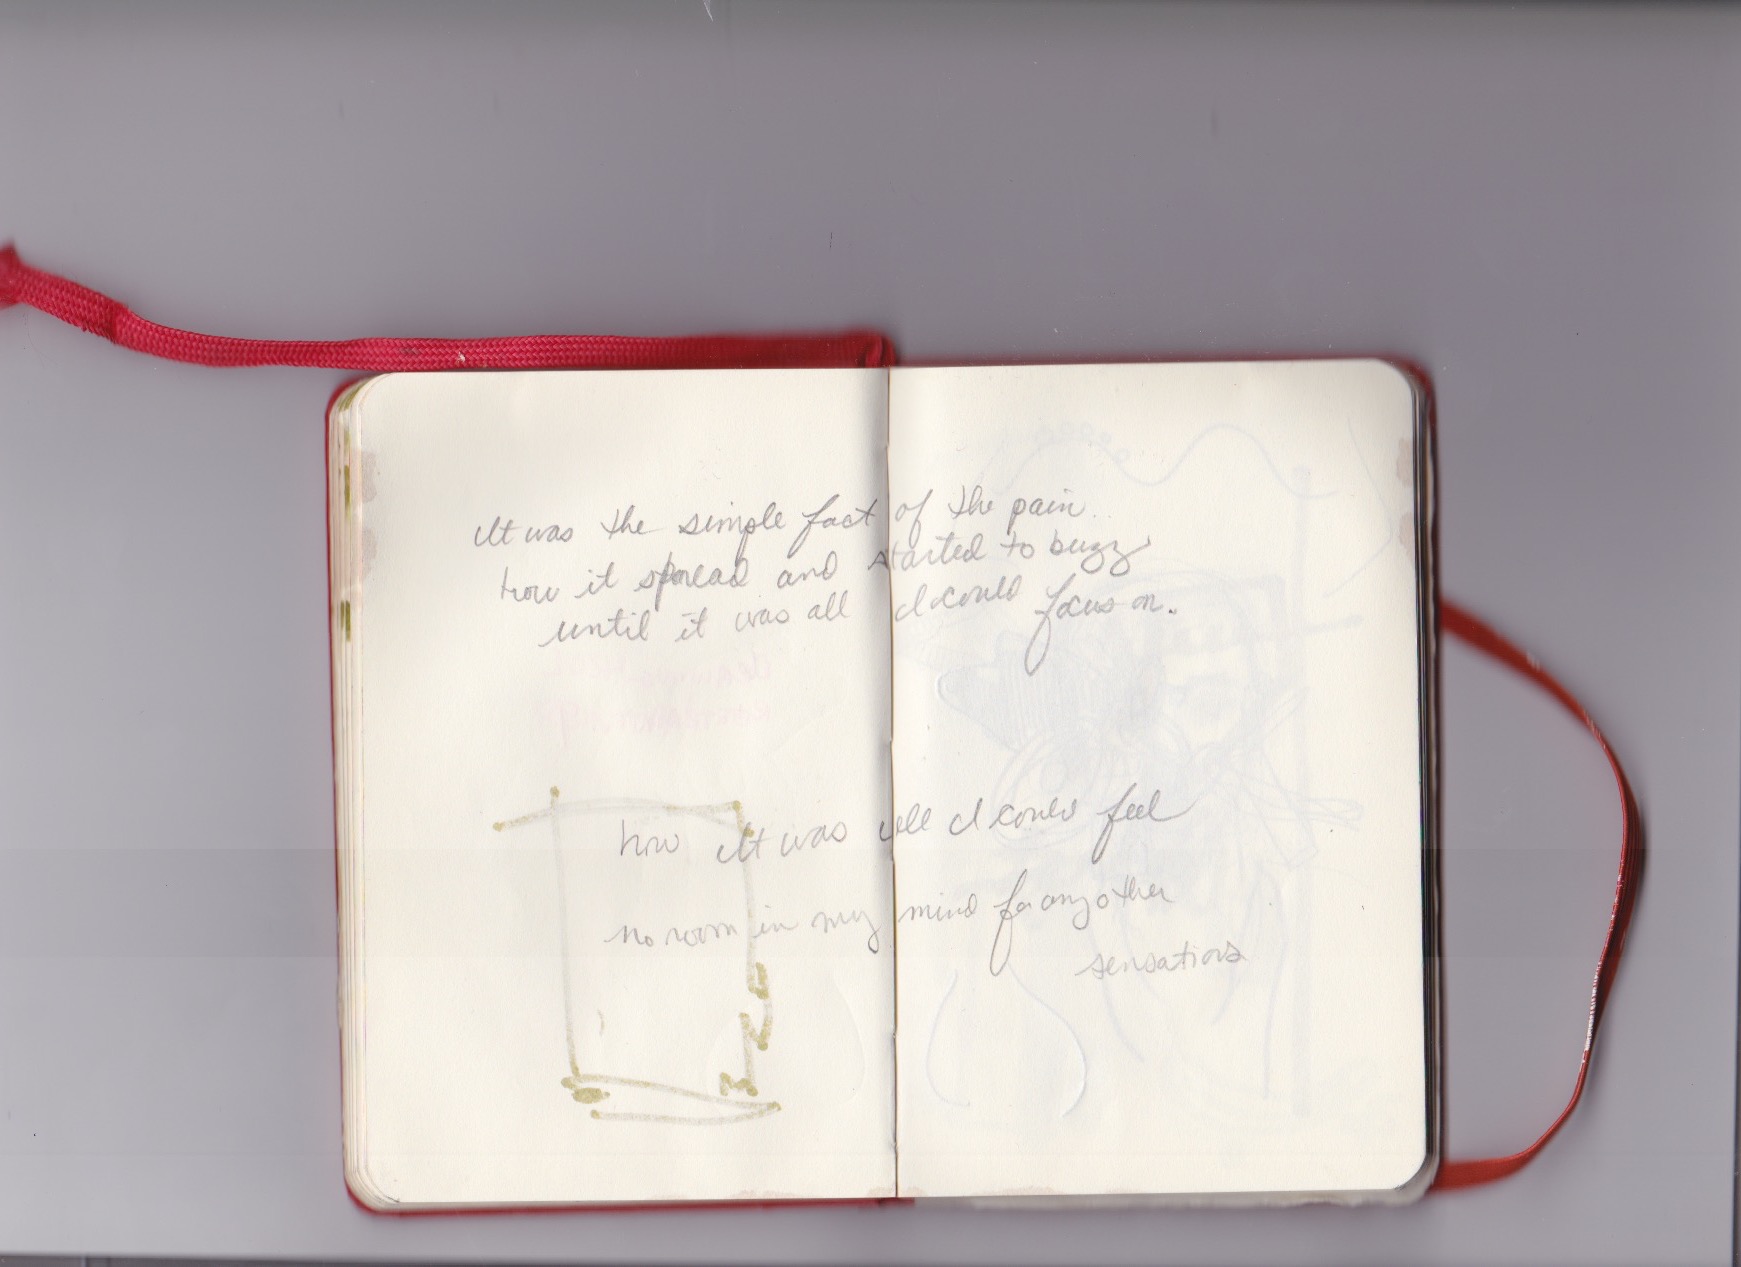 It was the simple fact of the pain..
how it spread and started to buzz
until it was all I could focus on.
how It was all I could feel
no room in my mind for any other
sensations